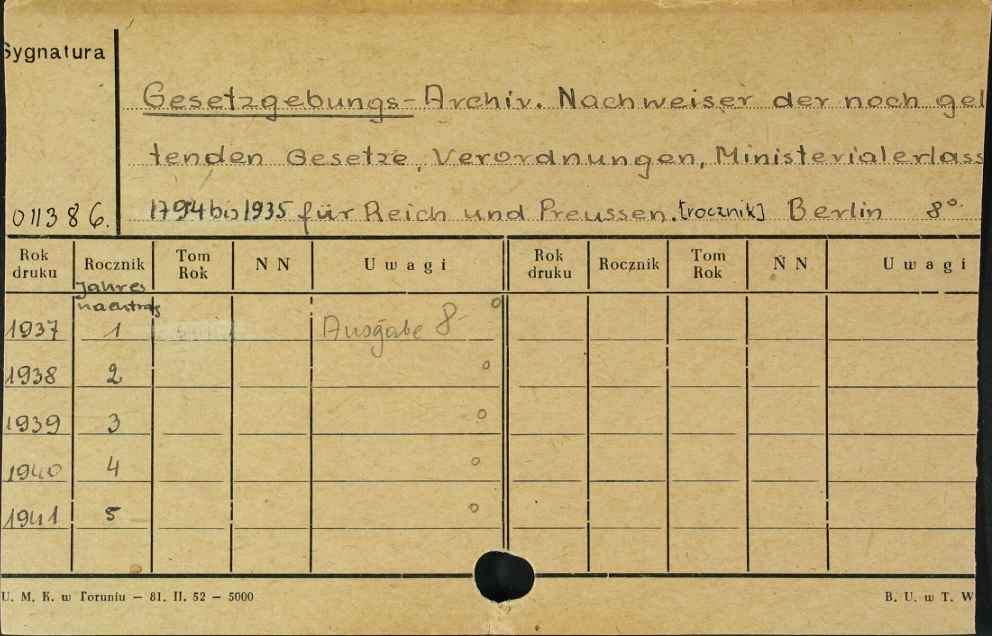 Sygnatura
Gesetzgebungs-Archiv. Nachweiser der noch gel
tenden Gesetze, Verordnungen, Ministerialerlass
011386. 1794 bis 1935 für Reich und Preussen. [rocznik] Berlin 8°.
Rok druku Rocznik Tom Rok N N Uwagi Rok druku Rocznik Tom Rok N N Uwagi
Jahres
nachtrag
1937 1 Ausgabe 8- o
1938 2 o
1939 3 o
1940 4 o
1941 5 o
U. M. K. w Toruniu — 81. II. 52 — 5000 B. U. w T. W